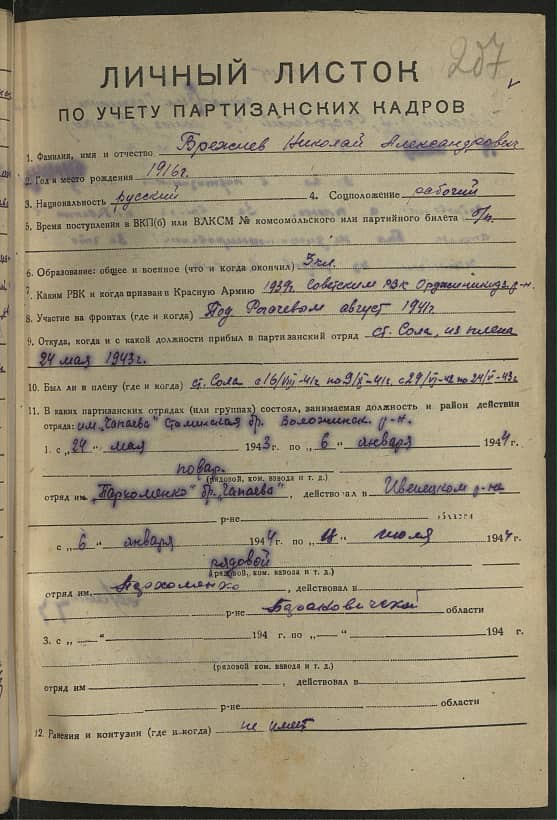 207
ЛИЧНЫЙ ЛИСТОК
ПО УЧЕТУ ПАРТИЗАНСКИХ КАДРОВ
1. Фамилия, имя и отчество Брежнев Николай Александрович
2. Год и место рождения 1916 г.
3. Национальность русский 4. Соцположение рабочий
5. Время поступления в ВКП(б) или ВЛКСМ № комсомольского или партийного билета б/п.
6. Образование: общее и военное (что и когда окончил) 3 кл.
7. Каким РВК и когда призван в Красную Армию 1939 г. Советским РВК Орджоникидз. р-н.
8. Участие на фронтах (где и когда) Под Рогачевым август 1941 г
9. Откуда, когда и с какой должности прибыл в партизанский отряд ст. Сола, из плена
24 мая 1943 г.
10. Был ли в плену (где и когда) ст. Сола с 16/VIII-41г по 9/X-41г. с 29/VI-42 по 24/V-43г
11. В каких партизанских отрядах (или группах) состоял, занимаемая должность и район действия
отряда: им. "Чапаева" Сталинская бр. Воложинск. р-н.
1. с „24" мая 1943 г. по „6" января 1944 г.
повар.
(рядовой, ком. взвода и т. д.)
отряд им. „Пархоменко" бр. „Чапаева", действовал в Ивенецком р-не
р-не области
с „6" января 1944 г. по июля 1944 г.
рядовой
(рядовой, ком. взвода и т. д.)
отряд им. Пархоменко, действовал в
р-не Барановической области
3. с „—" 194 г. по „—" 194 г.
(рядовой ком. взвода и т. д.)
отряд им , действовал в
р-не области
12. Ранения и контузии (где и когда) не имеет